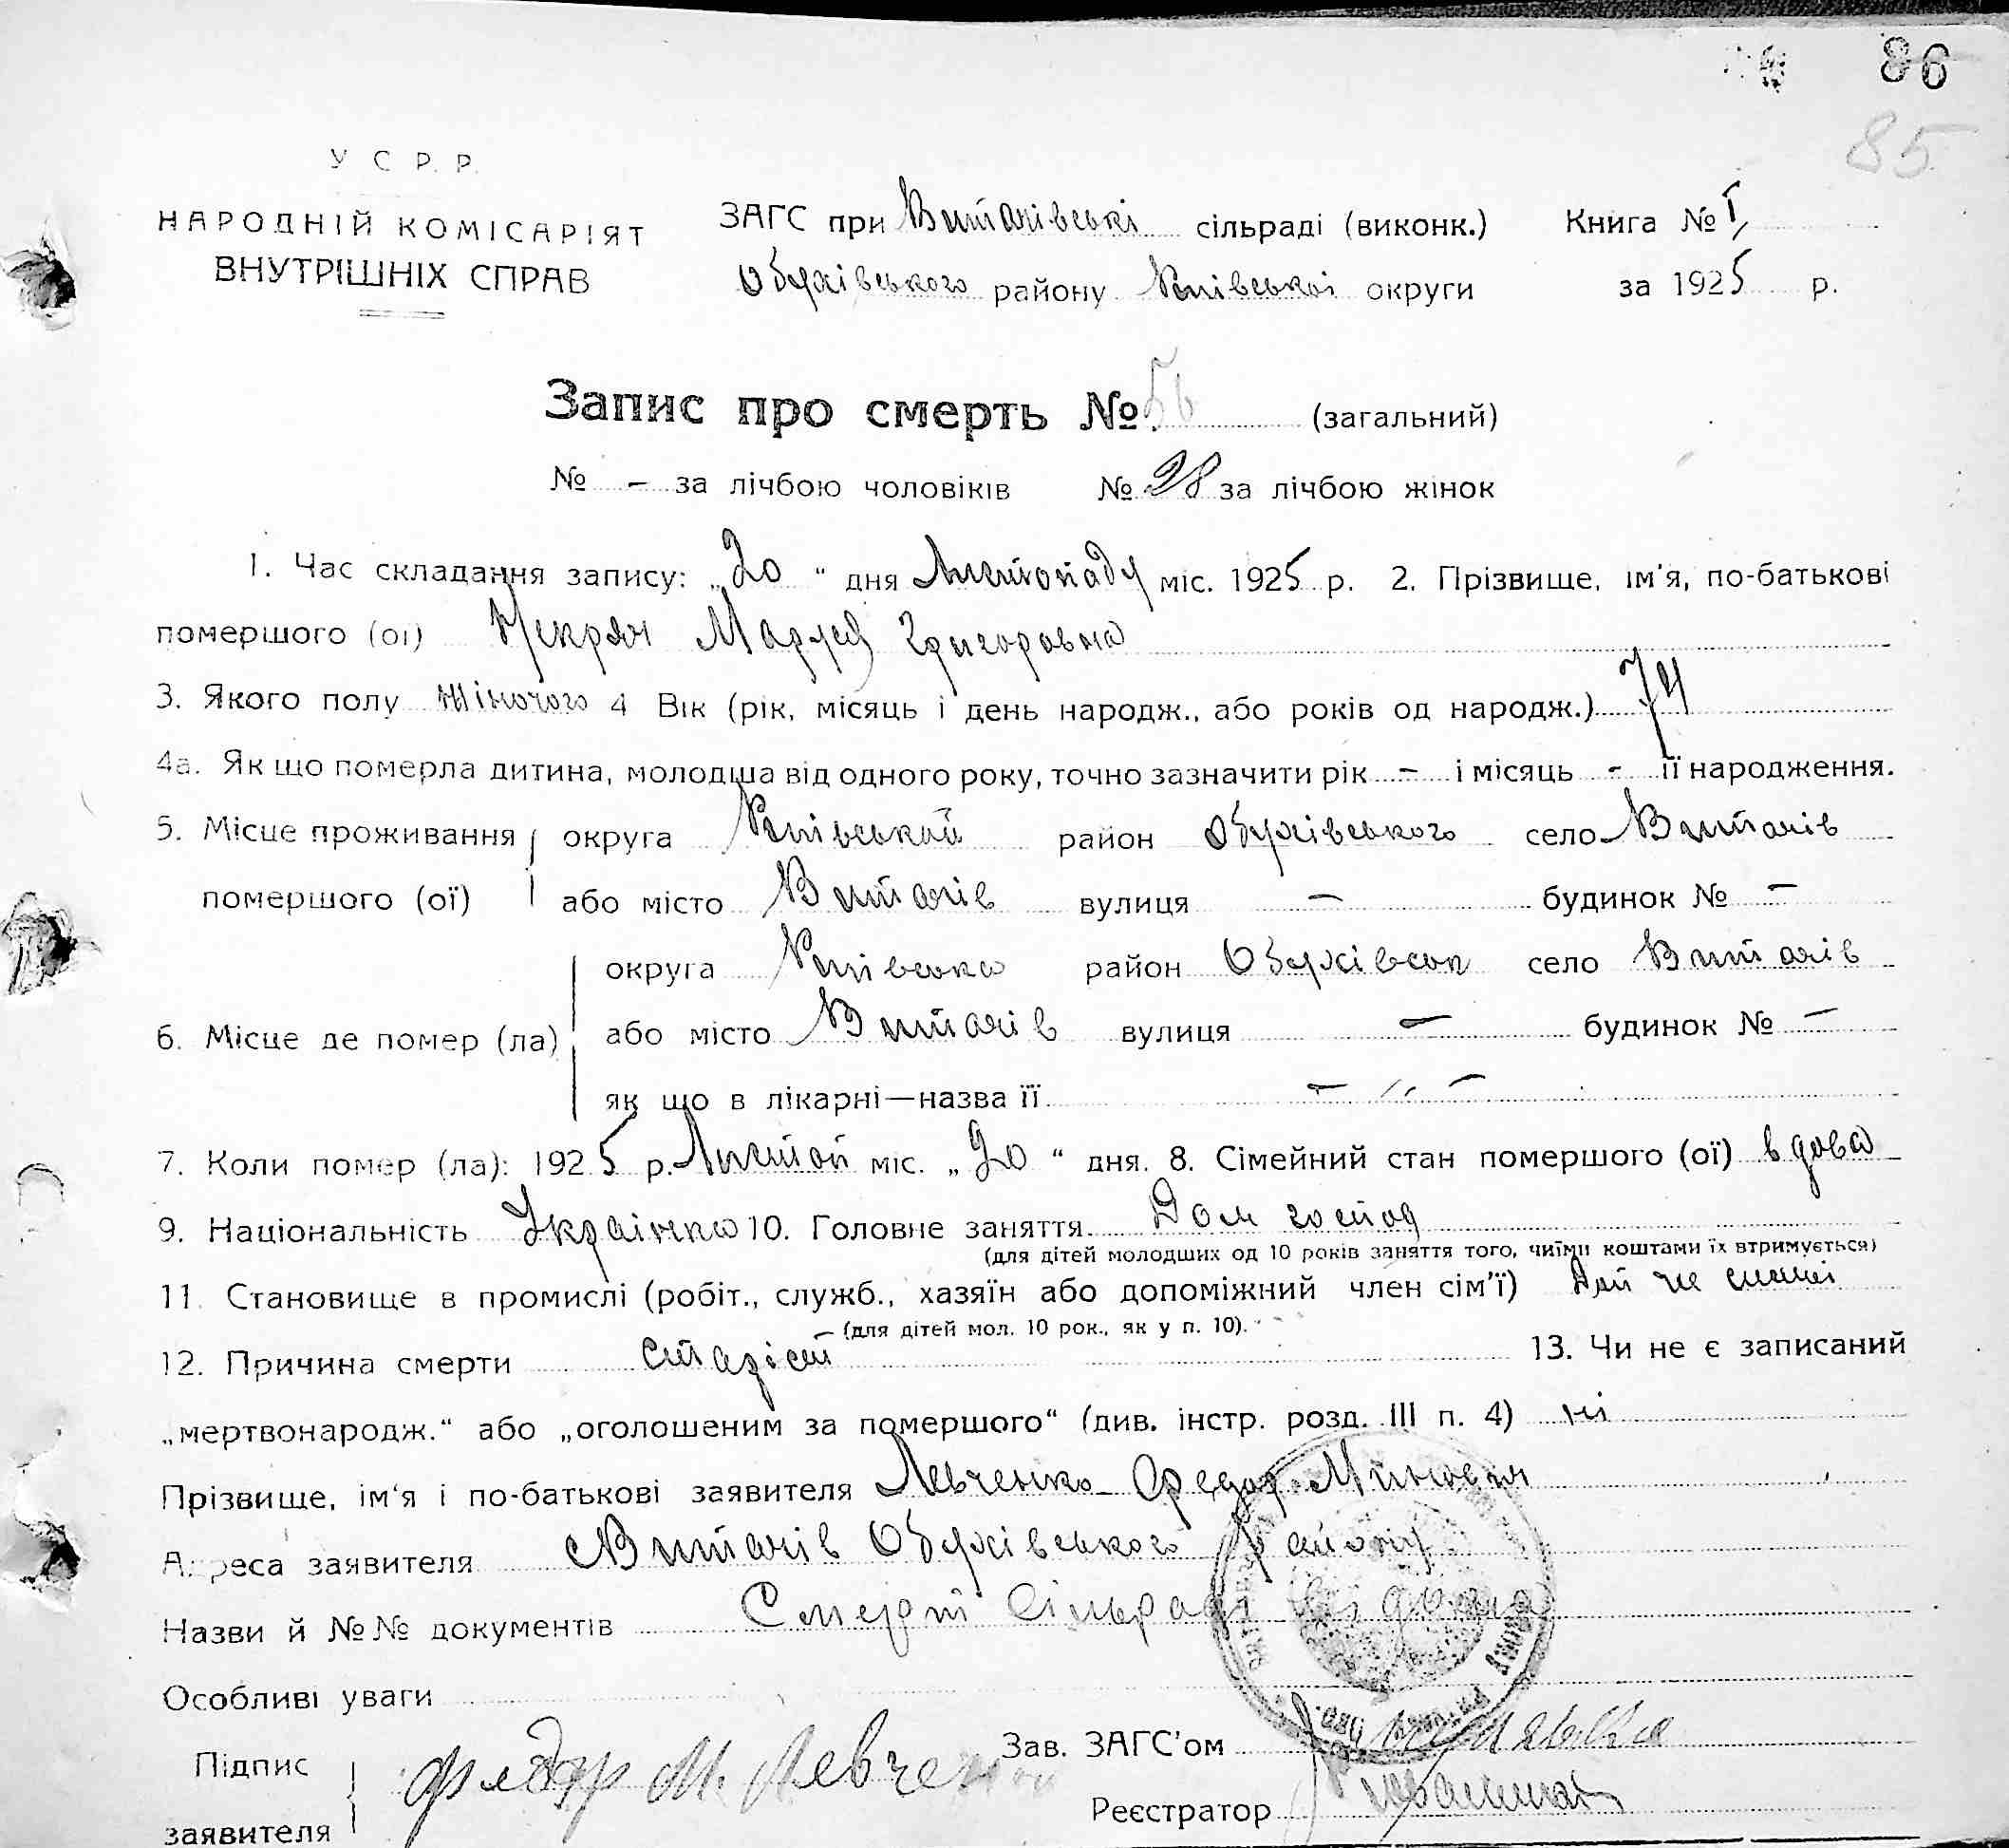 86
85
У С Р. Р.
НАРОДНІЙ КОМІСАРІЯТ
ВНУТРІШНІХ СПРАВ
ЗАГС при Витачівські сільраді (виконк.) Книга № I
Обухівського району Київської округи за 1925 р.
Запис про смерть № 56 (загальний)
№ – за лічбою чоловіків № 28 за лічбою жінок
1. Час складання запису: „20“ дня Листопаду міс. 1925 р. 2. Прізвище, ім'я, по-батькові
помершого (ої) Григоровна
3. Якого полу жіночого 4 Вік (рік, місяць і день народж., або років од народж.) 74
4а. Як що померла дитина, молодша від одного року, точно зазначити рік – і місяць – її народження.
5. Місце проживання округа Київської район Обухівського село Витачів
помершого (ої) або місто Витачів вулиця – будинок № –
округа Київська район Обухівськ село Витачів
6. Місце де помер (ла) або місто Витачів вулиця – будинок № –
як що в лікарні—назва її – „ –
7. Коли помер (ла): 1925 р. Листоп міс. „20“ дня. 8. Сімейний стан помершого (ої) вдова
9. Національність Українка 10. Головне заняття Дом господ
(для дітей молодших од 10 років заняття того, чиїми коштами їх втримується)
11. Становище в промислі (робіт., служб., хазяїн або допоміжний член сім'ї) Доп чл
(для дітей мол. 10 рок., як у п. 10).
12. Причина смерти старість 13. Чи не є записаний
„мертвонародж.“ або „оголошеним за помершого“ (див. інстр. розд. III п. 4) ні
Прізвище, ім'я і по-батькові заявителя Левченко Федор
Адреса заявителя Витачів Обухівського району
Назви й №№ документів Смерть Сільраді відома
Особливі уваги
Підпис
заявителя Федор М. Левченко
Зав. ЗАГС'ом
Реєстратор